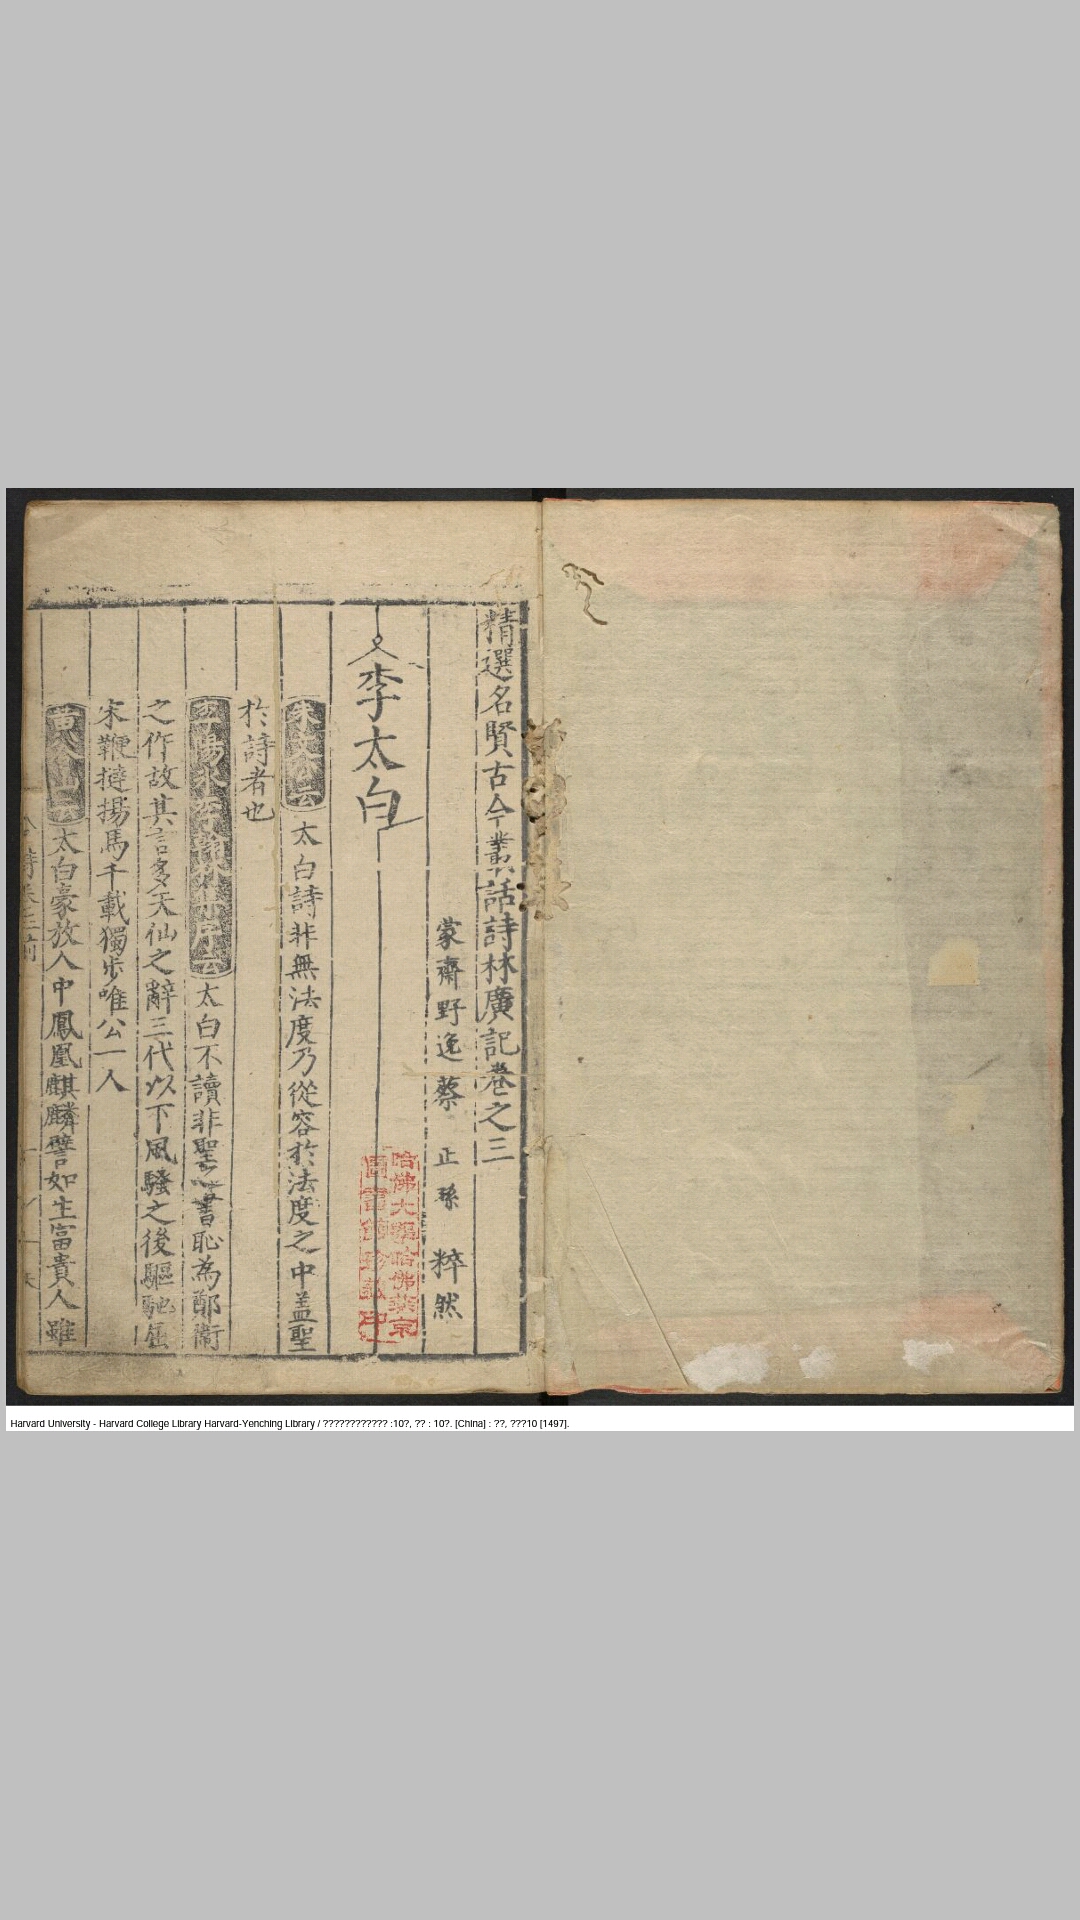 精選名賢古今叢話詩林廣記卷之三
蒙齋野逸蔡 正孫 粹然
李太白
朱文公云 太白詩非無法度乃從容於法度之中盖聖
於詩者也
李陽冰云 太白不讀非聖之書恥為鄭衛
之作故其言多天仙之辭三代以下風騷之後驅馳屈
宋鞭撻揚馬千載獨步唯公一人
黃 云 太白豪放人中鳳凰麒麟譬如生富貴人雖
哈佛大學哈佛燕京
圖書館珍藏印
Harvard University - Harvard College Library Harvard-Yenching Library / ???????????? :10?, ?? : 10?. [China] : ??, ???10 [1497].